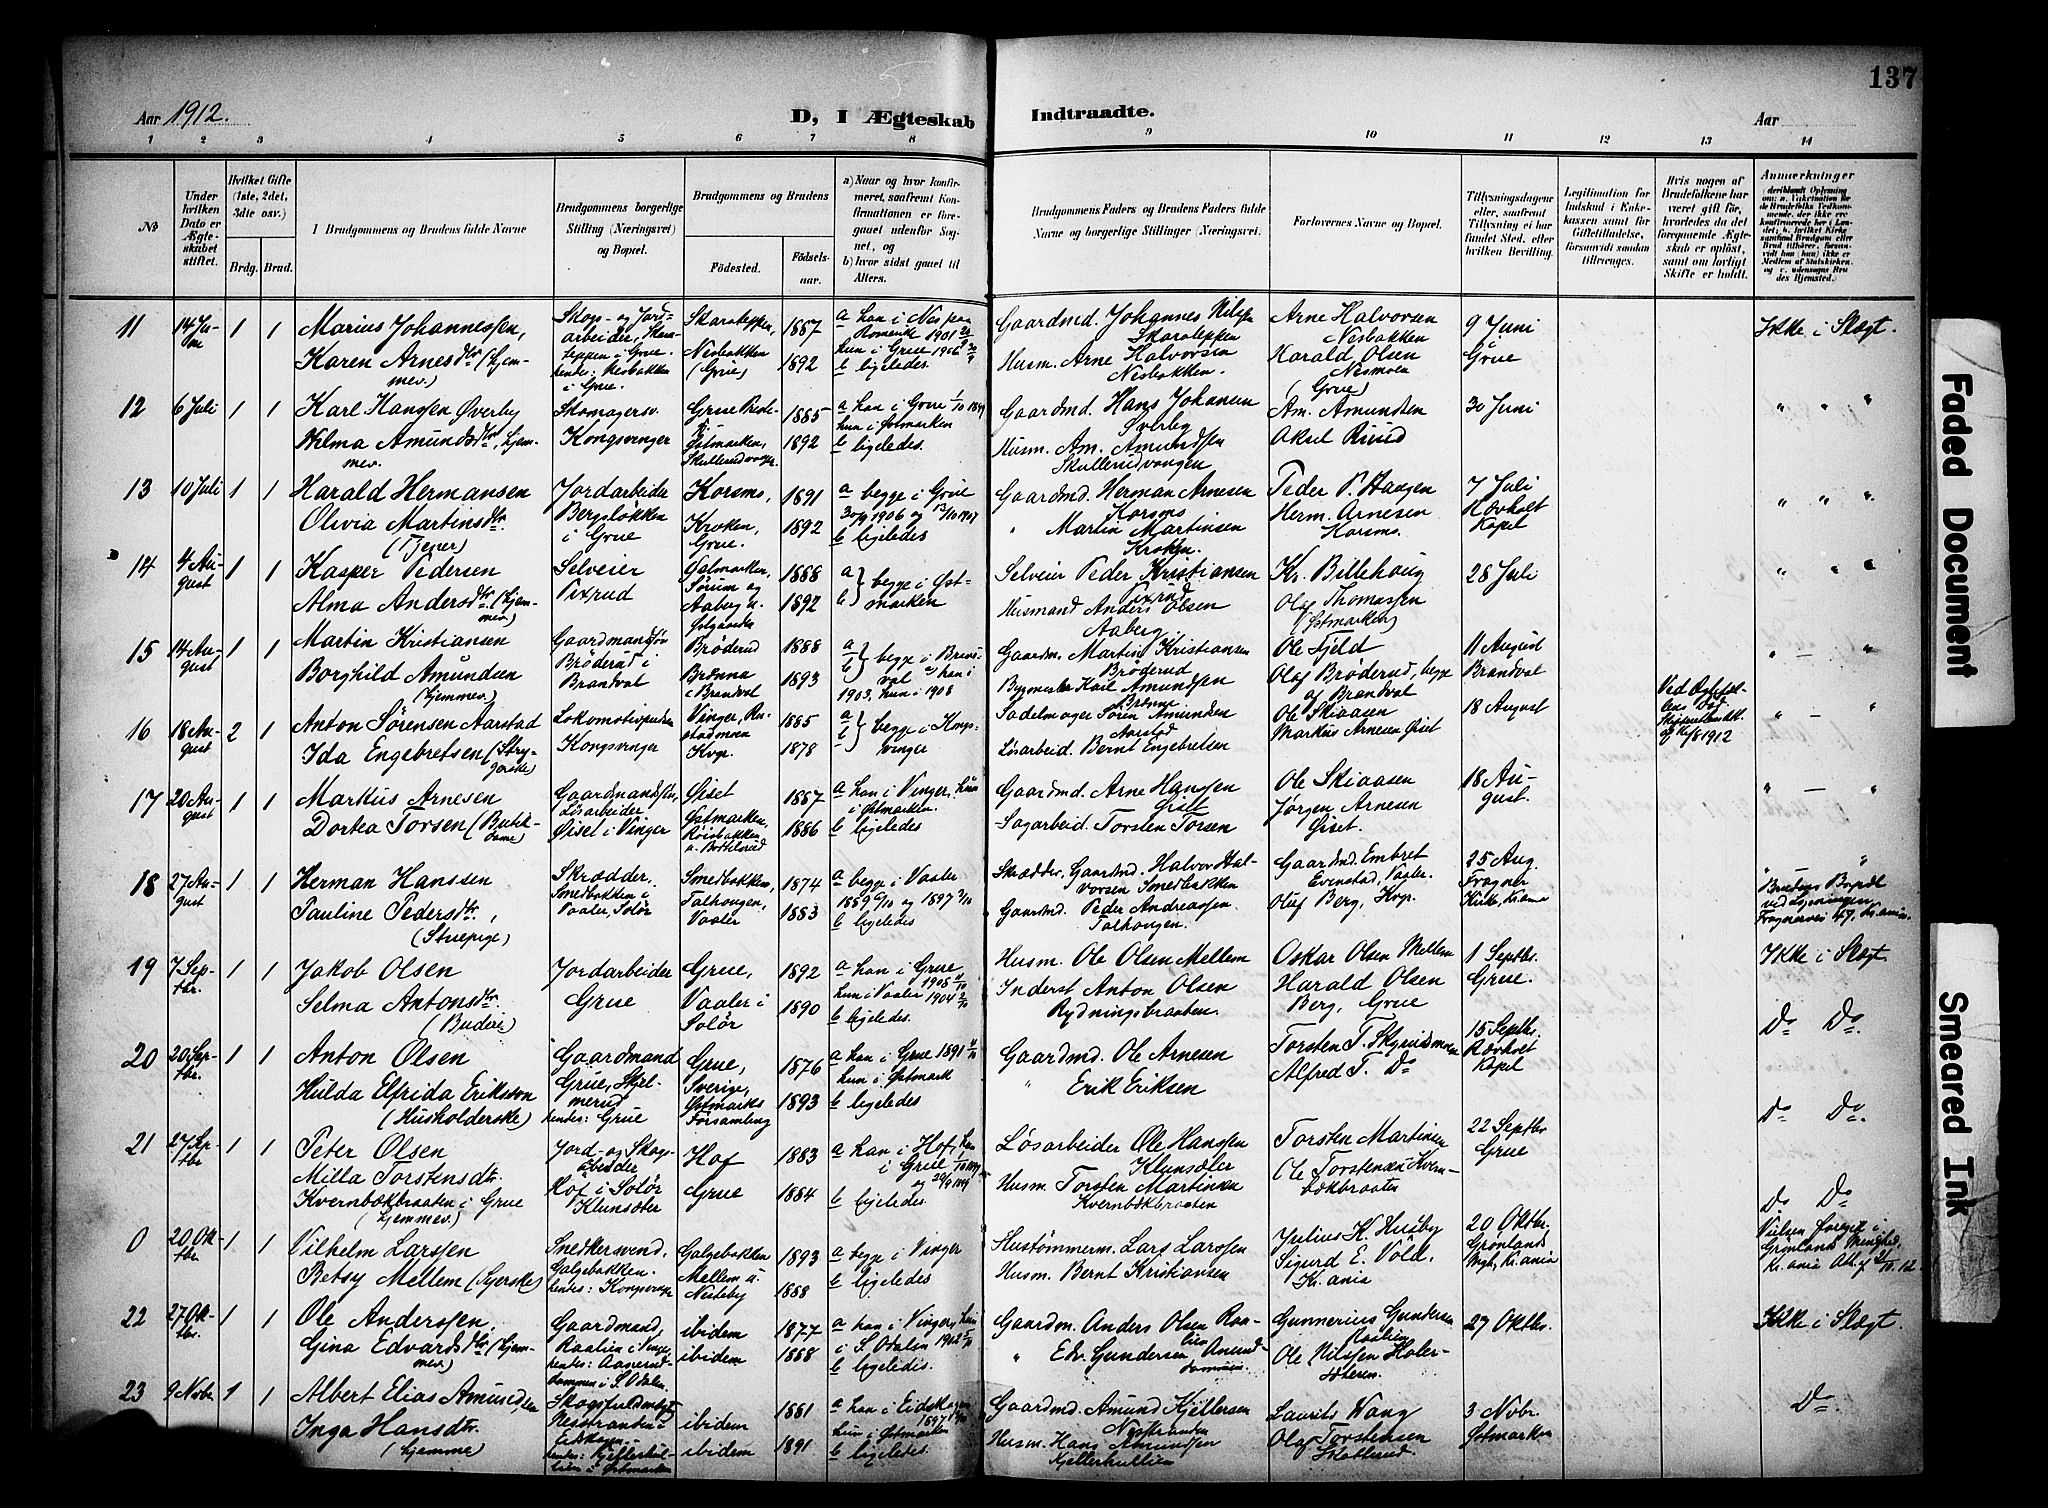 137
Aar 1912. D, I Ægteskab Indtraadte. Aar
1 2 3 4 5 6 7 8 9 10 11 12 13 14
№
Under hvilken Dato er Ægteskabet stiftet.
Hvilket Gifte (1ste, 2det, 3die osv.)
Brdg. Brud.
Brudgommens og Brudens fulde Navne
Brudgommens borgerlige Stilling (Næringsvei) og Bopæl.
Brudgommens og Brudens
Fødested. Fødselsaar.
a) Naar og hvor konfirmeret, saafremt Konfirmationen er foregaaet udenfor Sognet, og
b) hvor sidst gaaet til Alters.
Brudgommens Faders og Brudens Faders fulde Navne og borgerlige Stillinger (Næringsvei).
Forlovernes Navne og Bopæl.
Tillysningsdagene eller, saafremt Tillysning ei har fundet Sted, efter hvilken Bevilling.
Legitimation for Indskud i Enkekassen samt for Giftetilladelse, forsaavidt saadan tiltrænges.
Hvis nogen af Brudefolkene har været gift før, hvorledes da det foregaaende Ægteskab er opløst, samt om lovligt Skifte er holdt.
Anmærkninger
11 14 Juni 1 1 Marius Johannessen, Karen Arnesdtr (Hjemmev.)
Skogs- og Jordarbeider, Skaraleppen i Grue. hendes: Nesbakken i Grue.
Skaraleppen, Nesbakken (Grue) 1887 1892
a han i Nes paa Romerike 1901 hun i Grue 1906
b ligeledes.
Gaardmd. Johannes Nilsen Skaraleppen
Husm. Arne Halvorsen Nesbakken.
Arne Halvorsen Nesbakken Harald Olsen Nesmoen (Grue)
9 Juni Grue
Ikke i Slægt.
12 6 Juli 1 1 Karl Hanssen Øverby Hilma Amundsdtr, hjemmev.
Skomagersv. Kongsvinger
Østmarken, Skullerudvangen 1885 1892
a han i Grue hun i Østmarken
b ligeledes.
Gaardmd. Hans Johansen Øverby
Husm. Am. Amundssen Skullerudvangen
Am. Amundsen Aksel Ruud
30 Juni
" " "
13 10 Juli 1 1 Harald Hermansen Olivia Martinsdtr. (Tjener)
Jordarbeider Bergsløkken i Grue
Korsmo, Kroken, Grue. 1891 1892
a begge i Grue 30/9 1906 og 13/10 1907
b ligeledes
Gaardmd. Herman Arnesen Korsmo
" Martin Martinsen Kroken.
Peder P. Haugen Herm. Arnesen Korsmo.
7 Juli Rovholt Kapel
" " "
14 4 August 1 1 Kasper Pedersen Alma Andersdtr (hjemmev.)
Selveier Vixrud
Østmarken, Sørum og Aaberg u. 1888 1892
a b begge i Østmarken
Selveier Peder Kristiansen Vixrud
Husmand Anders Olsen Aaberg
Kr. Billehaug Olaf Thomassen (Østmarken)
28 Juli
" " "
15 14 August 1 1 Martin Kristiansen Borghild Amundsen (hjemmev.)
Gaardmandssøn Brøderud i Brandval
Brøderud Brenna i Brandval 1888 1893
a b begge i Brandval a) han i 1903, hun i 1908
Gaardm. Martin Kristiansen Brøderud
Bygmester Karl Amundsen Brenna
Ole Fjeld Olaf Brøderud, begge af Brandval
11 August Brandval
" — "
16 18 August 2 1 Anton Sørensen Aarstad Ida Engebretsen (Strygerske)
Lokomotivpudser Kongsvinger
Vinger, Rustadmoen Kvgr. 1885 1878
a b begge i Kongsvinger
Sadelmager Søren Amundsen Aarstad
Løsarbeid. Bernt Engebretsen
Ole Skiaasen Markus Arnesen Øiset
18 August
Ved Ægtefællens Død
" — "
17 20 August 1 1 Markus Arnesen Dortea Torsen (Butikdame)
Gaardmandssøn, Løsarbeider Øiset i Vinger
Øiset Østmarken, 1887 1886
a han i Vinger, hun i Østmarken.
b ligeledes
Gaardmd. Arne Hanssen Øiset
Sagarbeid. Torsten Torsen
Ole Skiaasen Jørgen Arnesen Øiset.
18 August.
" — "
18 27 August 1 1 Herman Hanssen Pauline Pedersdtr., (Stuepige)
Skrædder, Smedbakken i Vaaler, Solør
Smedbakken, Talhaugen, Vaaler 1874 1883
a begge i Vaaler 1889 og 1897
b ligeledes
Skrædder, Gaardmd. Halvor Halvorsen Smedbakken
Gaardmd. Peder Andreassen Talhaugen.
Gaardmd. Embret Evenstad, Vaaler. Oluf Berg, Kvgr.
25 Aug. Frogner Kirke, Kr.ania
" — " Brudens Bopæl ved Lysningen Frognervei 47, Kr.ania.
19 7 Septbr. 1 1 Jakob Olsen Selma Antonsdtr (Buderie)
Jordarbeider Grue
Grue, Vaaler i Solør 1892 1890
a han i Grue 1908 hun i Vaaler 1904
b ligeledes.
Husm. Ole Olsen Mellem
Inderst Anton Olsen Rydningsbraaten.
Oskar Olsen Mellem Harald Olsen Berg, Grue
1 Septbr. Grue.
Ikke i Slægt.
20 20 Septbr. 1 1 Anton Olsen Hulda Elfrida Eriksson (Husholderske)
Gaardmand Grue, Skjelmerud hendes: Grue
Grue, Sverige, Østmarks Församling 1876 1893
a han i Grue 1891 hun i Østmark
b ligeledes
Gaardmd. Ole Arnesen
" Erik Eriksen
Torsten T. Skyrudmoen Alfred T. Do
15 Septbr. Rovholt Kapel
Do Do.
21 27 Septbr 1 1 Peter Olsen Milla Torstensdtr. Kvernbækbraaten i Grue (hjemmev.)
Jord- og Skogsarbeider Hof i Solør Klunsæter
Hof Grue 1883 1884
a han i Hof, hun i Grue
b ligeledes.
Løsarbeider Ole Hanssen Klunsæter
Husm. Torsten Martinsen Kvernbækbraaten
Torsten Martinsen Ole Torstensen Kvernbækbraaten
22 Septbr Grue
Do Do
0 20 Oktbr. 1 1 Vilhelm Larssen Betsy Mellem (Syerske)
Snedkersvend, Galgebakken. hendes: Kongsvinger
Galgebakken Mellem u. Nesteby 1893 1888
a begge i Vinger
b ligeledes
Hustømmerm. Lars Larssen
Husm. Bernt Kristiansen
Julius K. Huseby Sigurd E. Vold, Kr.ania
20 Oktbr. Grønlands Mgh, Kr.ania
Do Do Vielsen foregik i Grønlands Menighed, Kr.ania
22 27 Oktbr. 1 1 Ole Anderssen, Gina Edvardsdtr (hjemmev.)
Gaardmand, Raalien i Vinger,
ibidem ibidem 1877 1888
a han i Vinger, hun i S. Odalen 1902
b ligeledes.
Gaardm. Anders Olsen Raalien
" Edv. Gundersen
Gunnerius Gundersen Raalien Ole Nilssen
27 Oktbr.
Ikke i Slægt.
23 9 Novbr. 1 1 Albert Elias Amundsen Inga Hansdtr. (hjemme)
Skogsfuldmægt. Nesstranden i Eidskogen
ibidem ibidem 1881 1891
a han i Eidskogen 1897 hun i Østmarken
b ligeledes
Gaardmd. Amund Kjellersen Nesstranden
Husm. Hans Amundsen Kjellerhullien
Laurits Wang Olaf Torstensen Skotterud
3 Novbr. Østmarken
Do
Faded Document
Smeared Ink